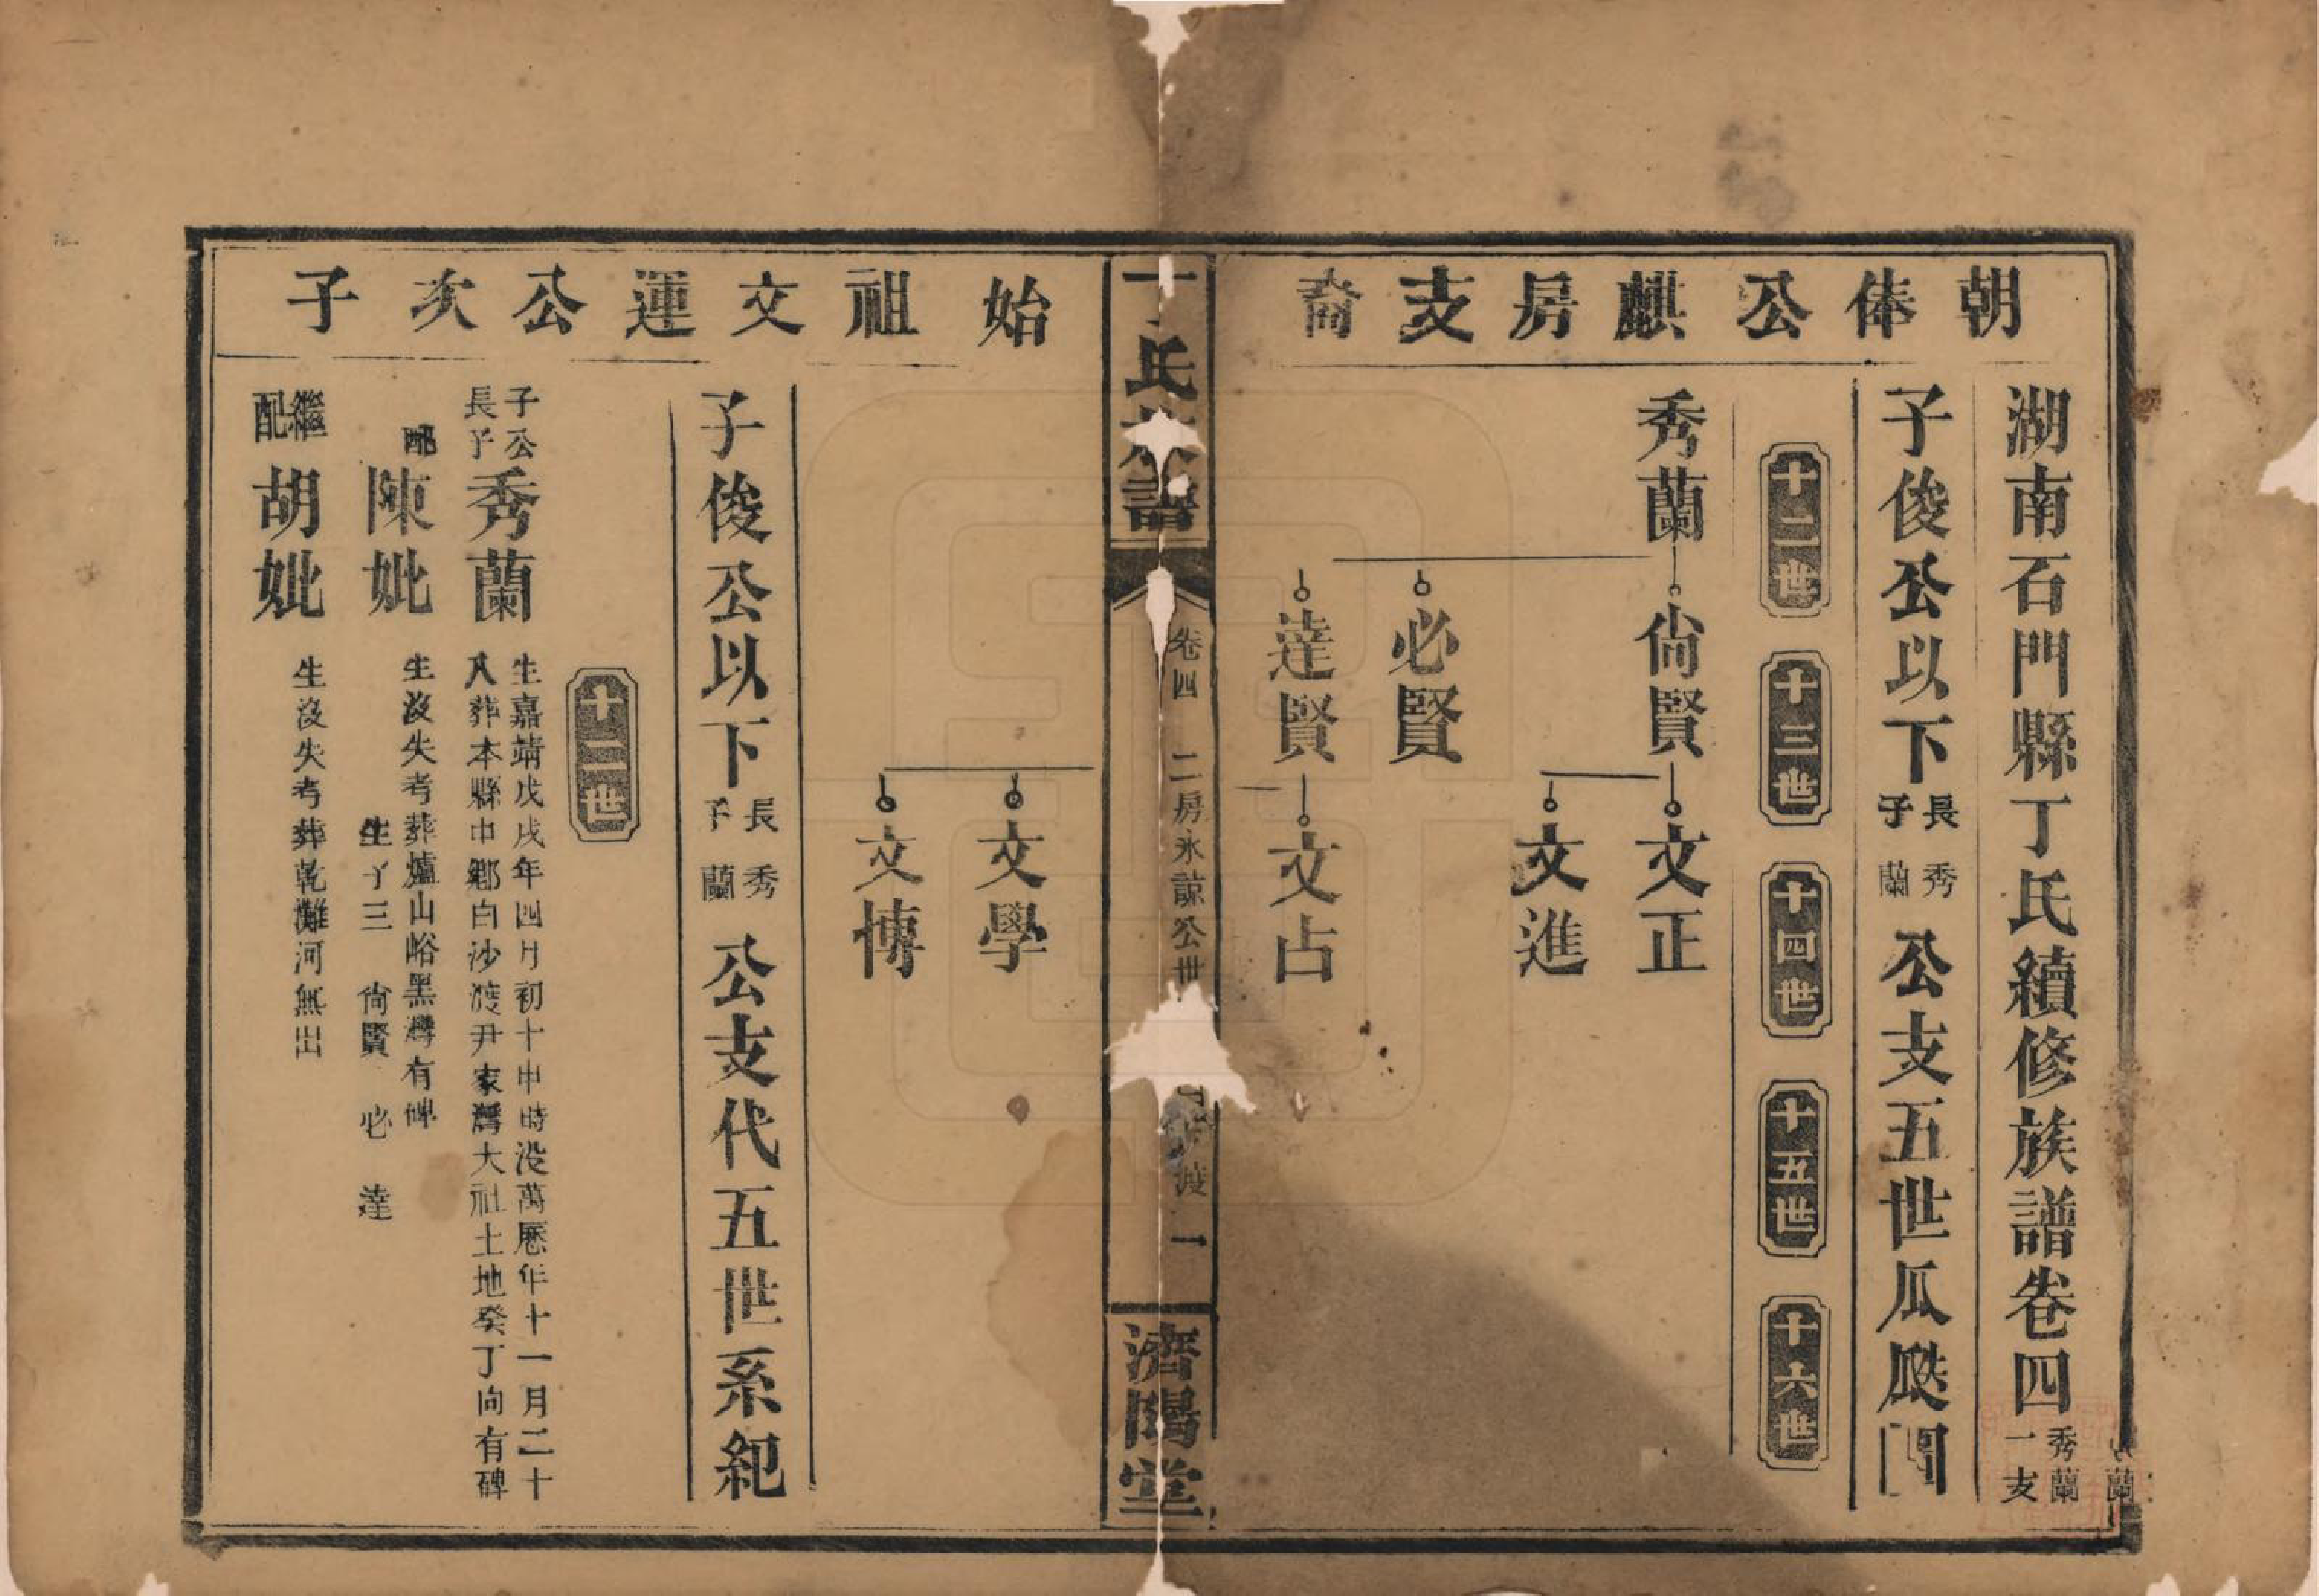 朝俸公麒房支裔
湖南石門縣丁氏續修族譜卷四
秀蘭
一支
子俊公以下
長
子
秀
蘭
公支五世瓜瓞圖
十二世
十三世
十四世
十五世
十六世
秀蘭
尙賢
文正
文進
必賢
達賢
文占
丁氏族譜
卷四
二房永諒公世
渡
一
濟陽堂
始祖文運公次子
文學
文博
子俊公以下
長
子
秀
蘭
公支代五世系紀
十二世
子公
長子
秀蘭
生嘉靖戊戌年四月初十申時没萬歷年十一月二十
八葬本縣中鄉白沙渡尹家灣大祖土地癸丁向有碑
配
陳妣
生没失考葬爐山峪黑灣有碑
生子三 尙賢 必 達
繼
配
胡妣
生没失考葬乾灘河無出